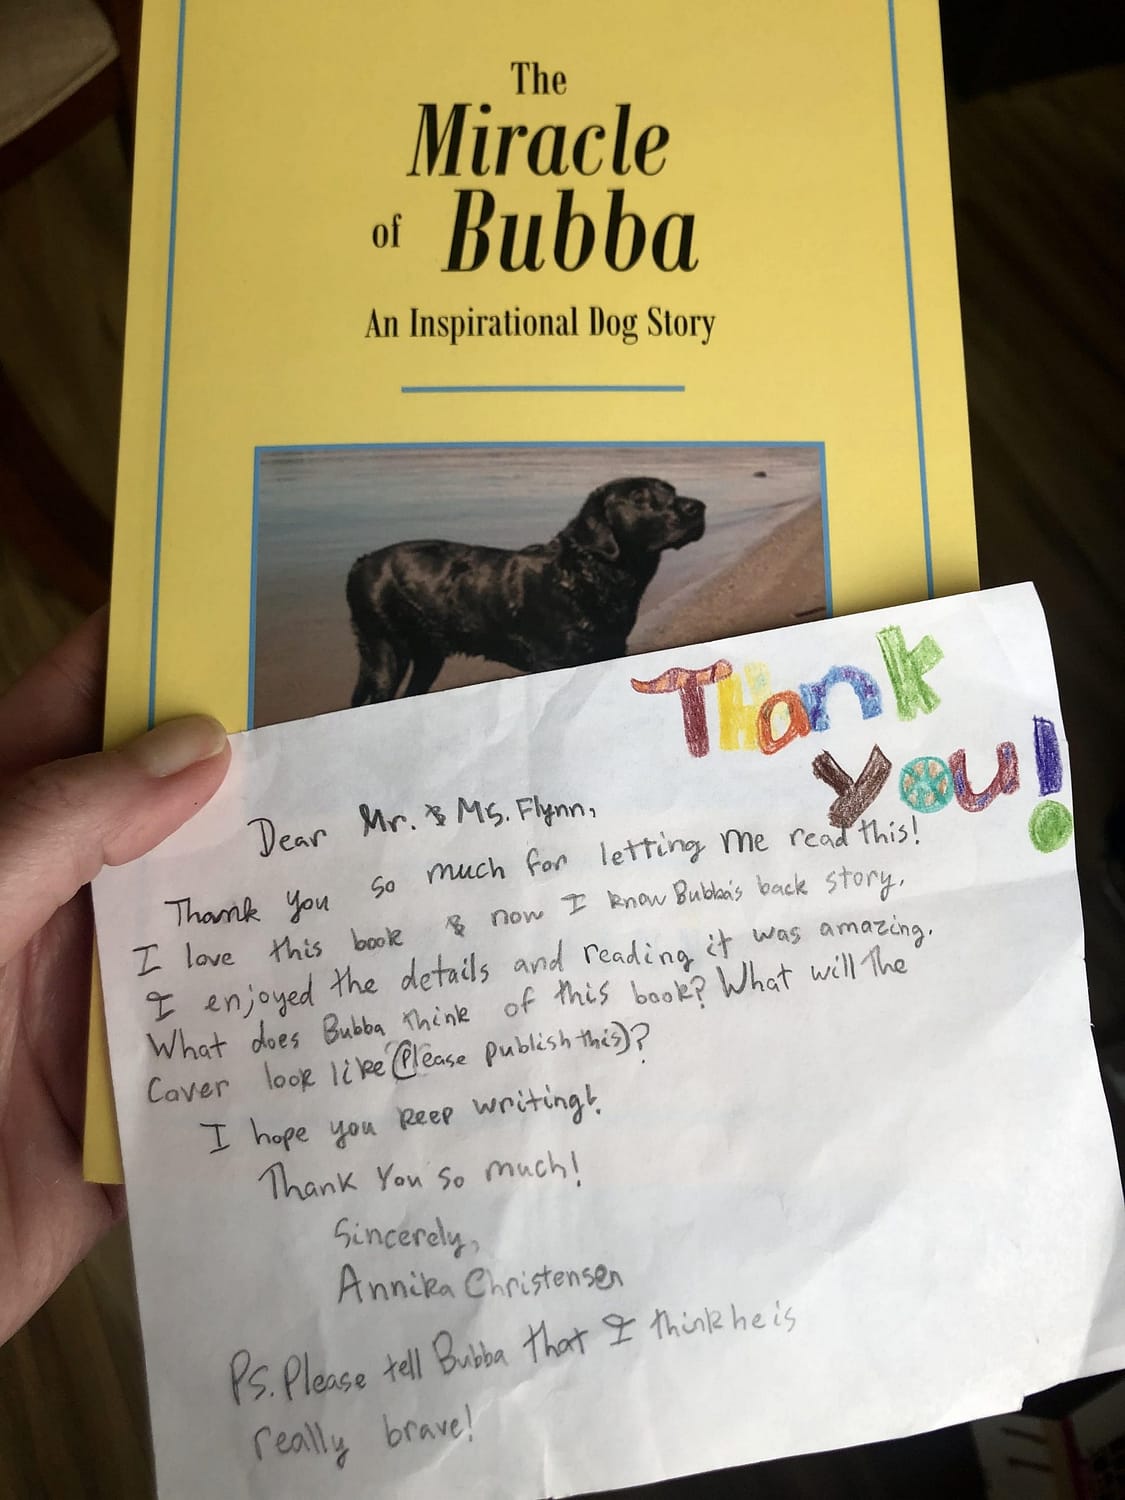 The
Miracle
of Bubba
An Inspirational Dog Story
Thank
you!
Dear Mr. & Ms. Flynn,
Thank you so much for letting me read this!
I love this book & now I know Bubba's back story.
I enjoyed the details and reading it was amazing.
What does Bubba think of this book? What will the
Cover look like (Please publish this)?
I hope you keep writing!
Thank You so much!
Sincerely,
Annika Christensen
Ps. Please tell Bubba that I think he is
really brave!